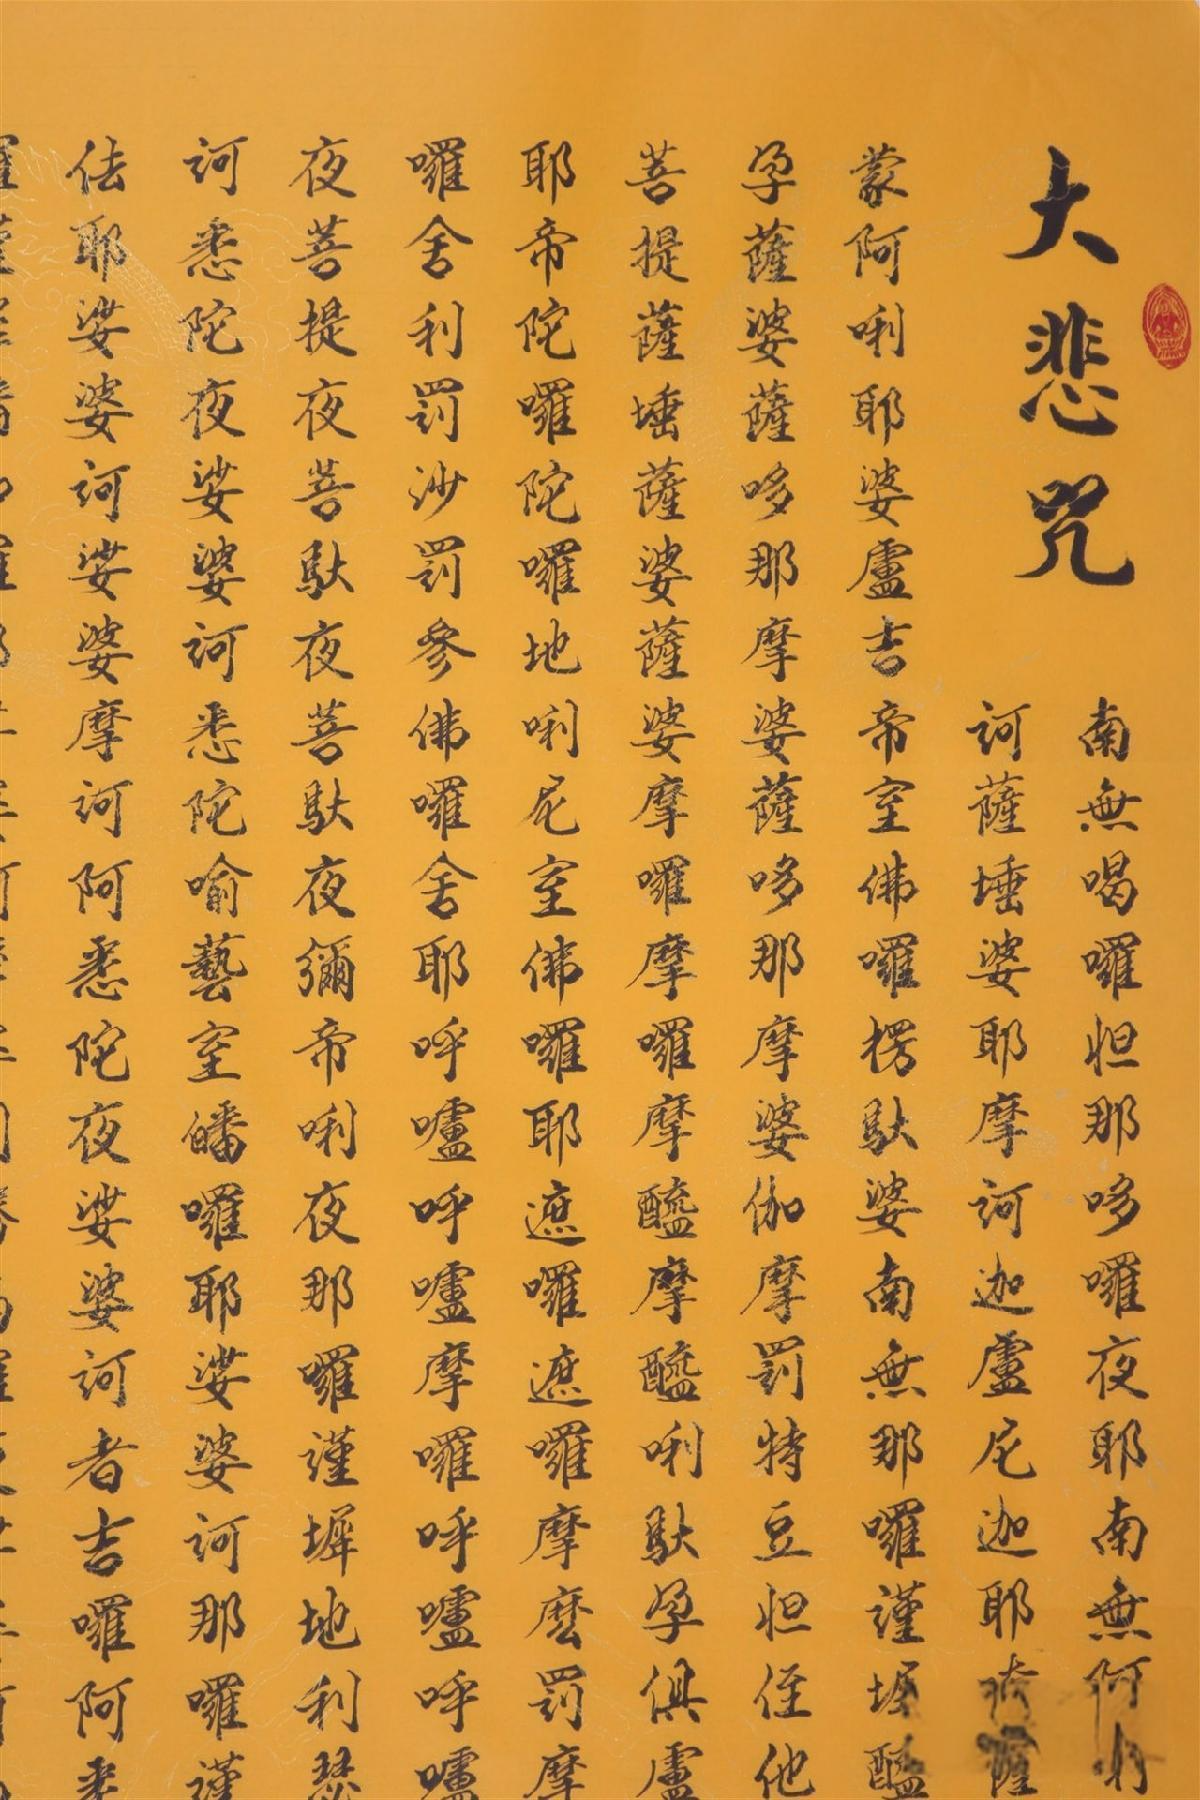 大悲咒
南無喝囉怛那哆囉夜耶南無阿
訶薩埵婆耶摩訶迦盧尼迦耶
蒙阿唎耶婆盧吉帝室佛囉楞馱婆南無那囉謹墀醯
孕薩婆薩哆那摩婆薩哆那摩婆伽摩罰特豆怛侄他
菩提薩埵薩婆薩婆摩囉摩囉摩醯摩醯唎馱孕俱盧
耶帝陀囉陀囉地唎尼室佛囉耶遮囉遮囉摩麼罰摩
囉舍利罰沙罰參佛囉舍耶呼嚧呼嚧摩囉呼嚧呼嚧
夜菩提夜菩馱夜菩馱夜彌帝唎夜那囉謹墀地利瑟
訶悉陀夜娑婆訶悉陀喻藝室皤囉耶娑婆訶那囉謹
佉耶娑婆訶娑婆摩訶阿悉陀夜娑婆訶者吉囉阿悉